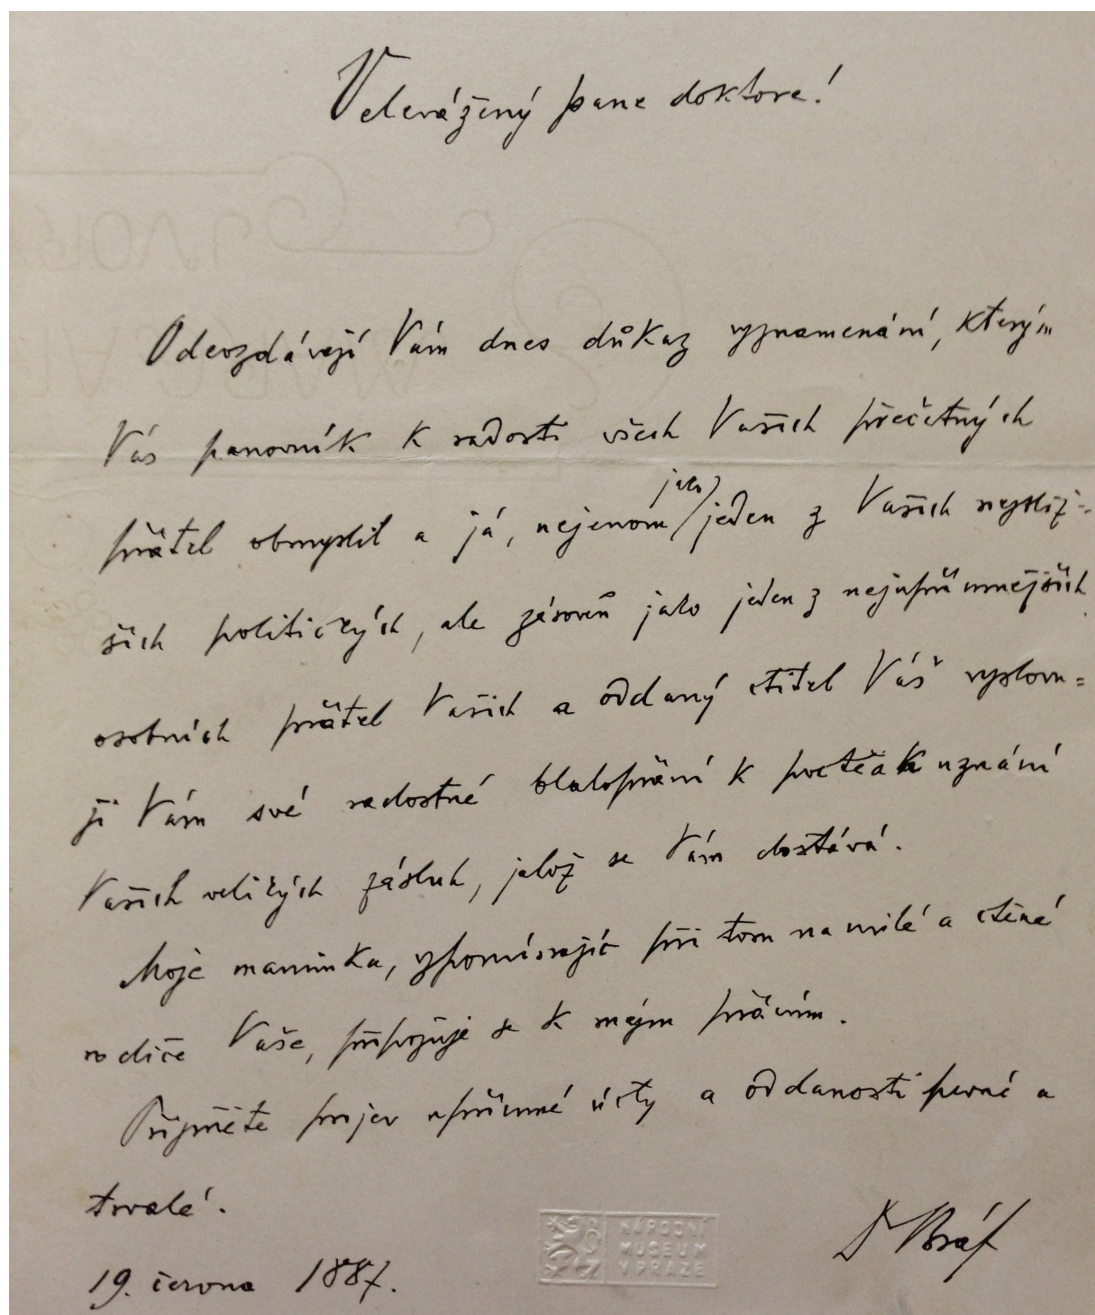 Velevážený pane doktore!
Odevzdávají Vám dnes důkaz vyznamenání, kterým
Vás panovník k radosti všech Vašich přečetných
jako
přátel obmyslil a já, nejenom jeden z Vašich nejbliž=
ších politických, ale zároveň jako jeden z nejupřímnějších
osobních přátel Vašich a oddaný ctitel Váš vyslovu=
ji Vám své radostné blahopřání k poctě a k uznání
Vašich velikých zásluh, jehož se Vám dostává.
Moje maminka, vzpomínajíc při tom na milé a ctěné
rodiče Vaše, připojuje se k mým přáním.
Přijměte projev upřímné úcty a oddanosti pevné a
trvalé.
Dr Bráf
19. června 1887.
NÁRODNÍ
MUSEUM
V PRAZE